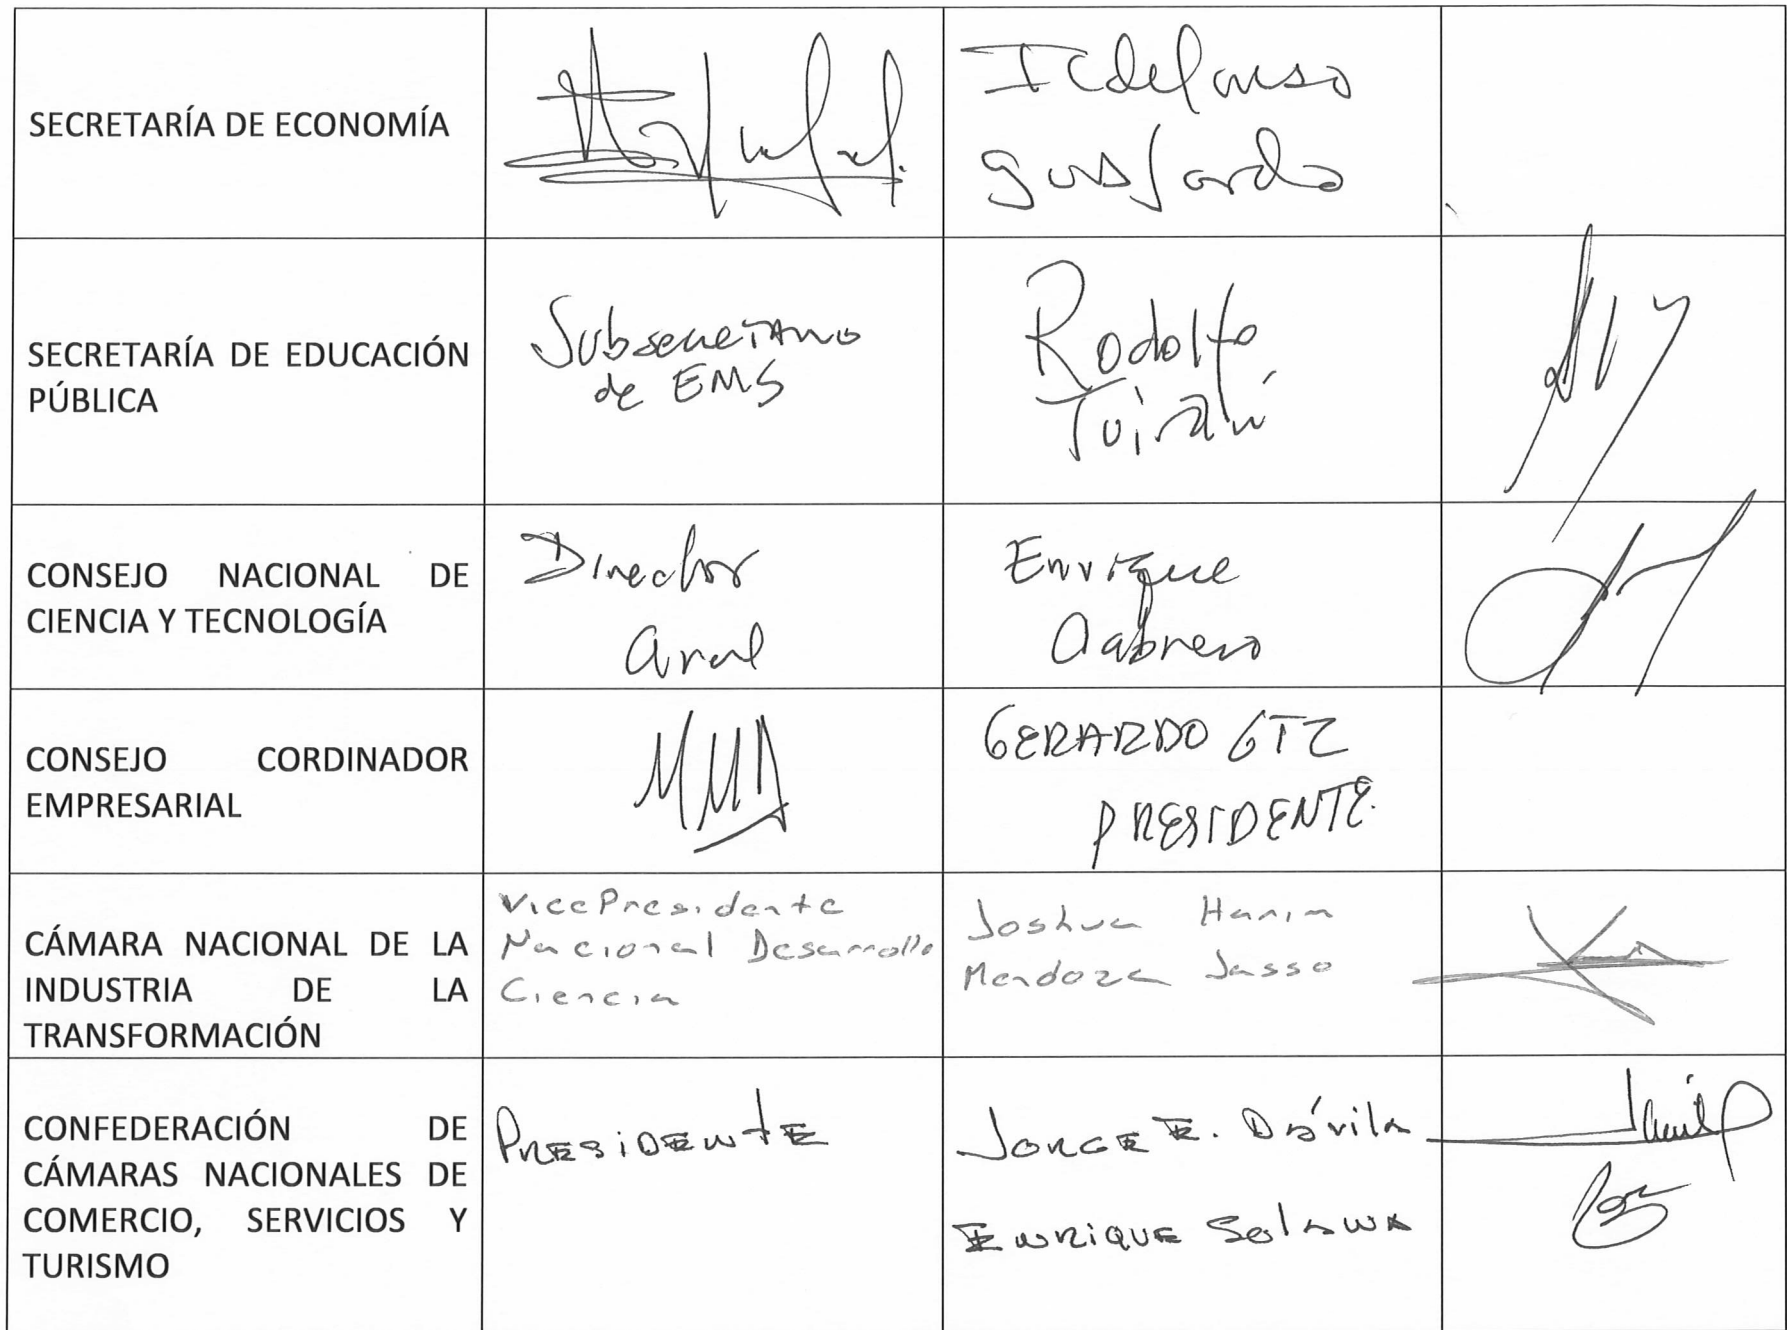 SECRETARÍA DE ECONOMÍA
Ildefonso
Guajardo
SECRETARÍA DE EDUCACIÓN
PÚBLICA
Subsecretario
de EMS
Rodolfo
Tuirán
CONSEJO NACIONAL DE
CIENCIA Y TECNOLOGÍA
Director
Gral
Enrique
Cabrero
CONSEJO CORDINADOR
EMPRESARIAL
GERARDO GTZ
PRESIDENTE
CÁMARA NACIONAL DE LA
INDUSTRIA DE LA
TRANSFORMACIÓN
VicePresidente
Nacional Desarrollo
Ciencia
Joshua Hanim
Mendoza Jasso
CONFEDERACIÓN DE
CÁMARAS NACIONALES DE
COMERCIO, SERVICIOS Y
TURISMO
PRESIDENTE
JORGE E. Dávila
ENRIQUE Solana